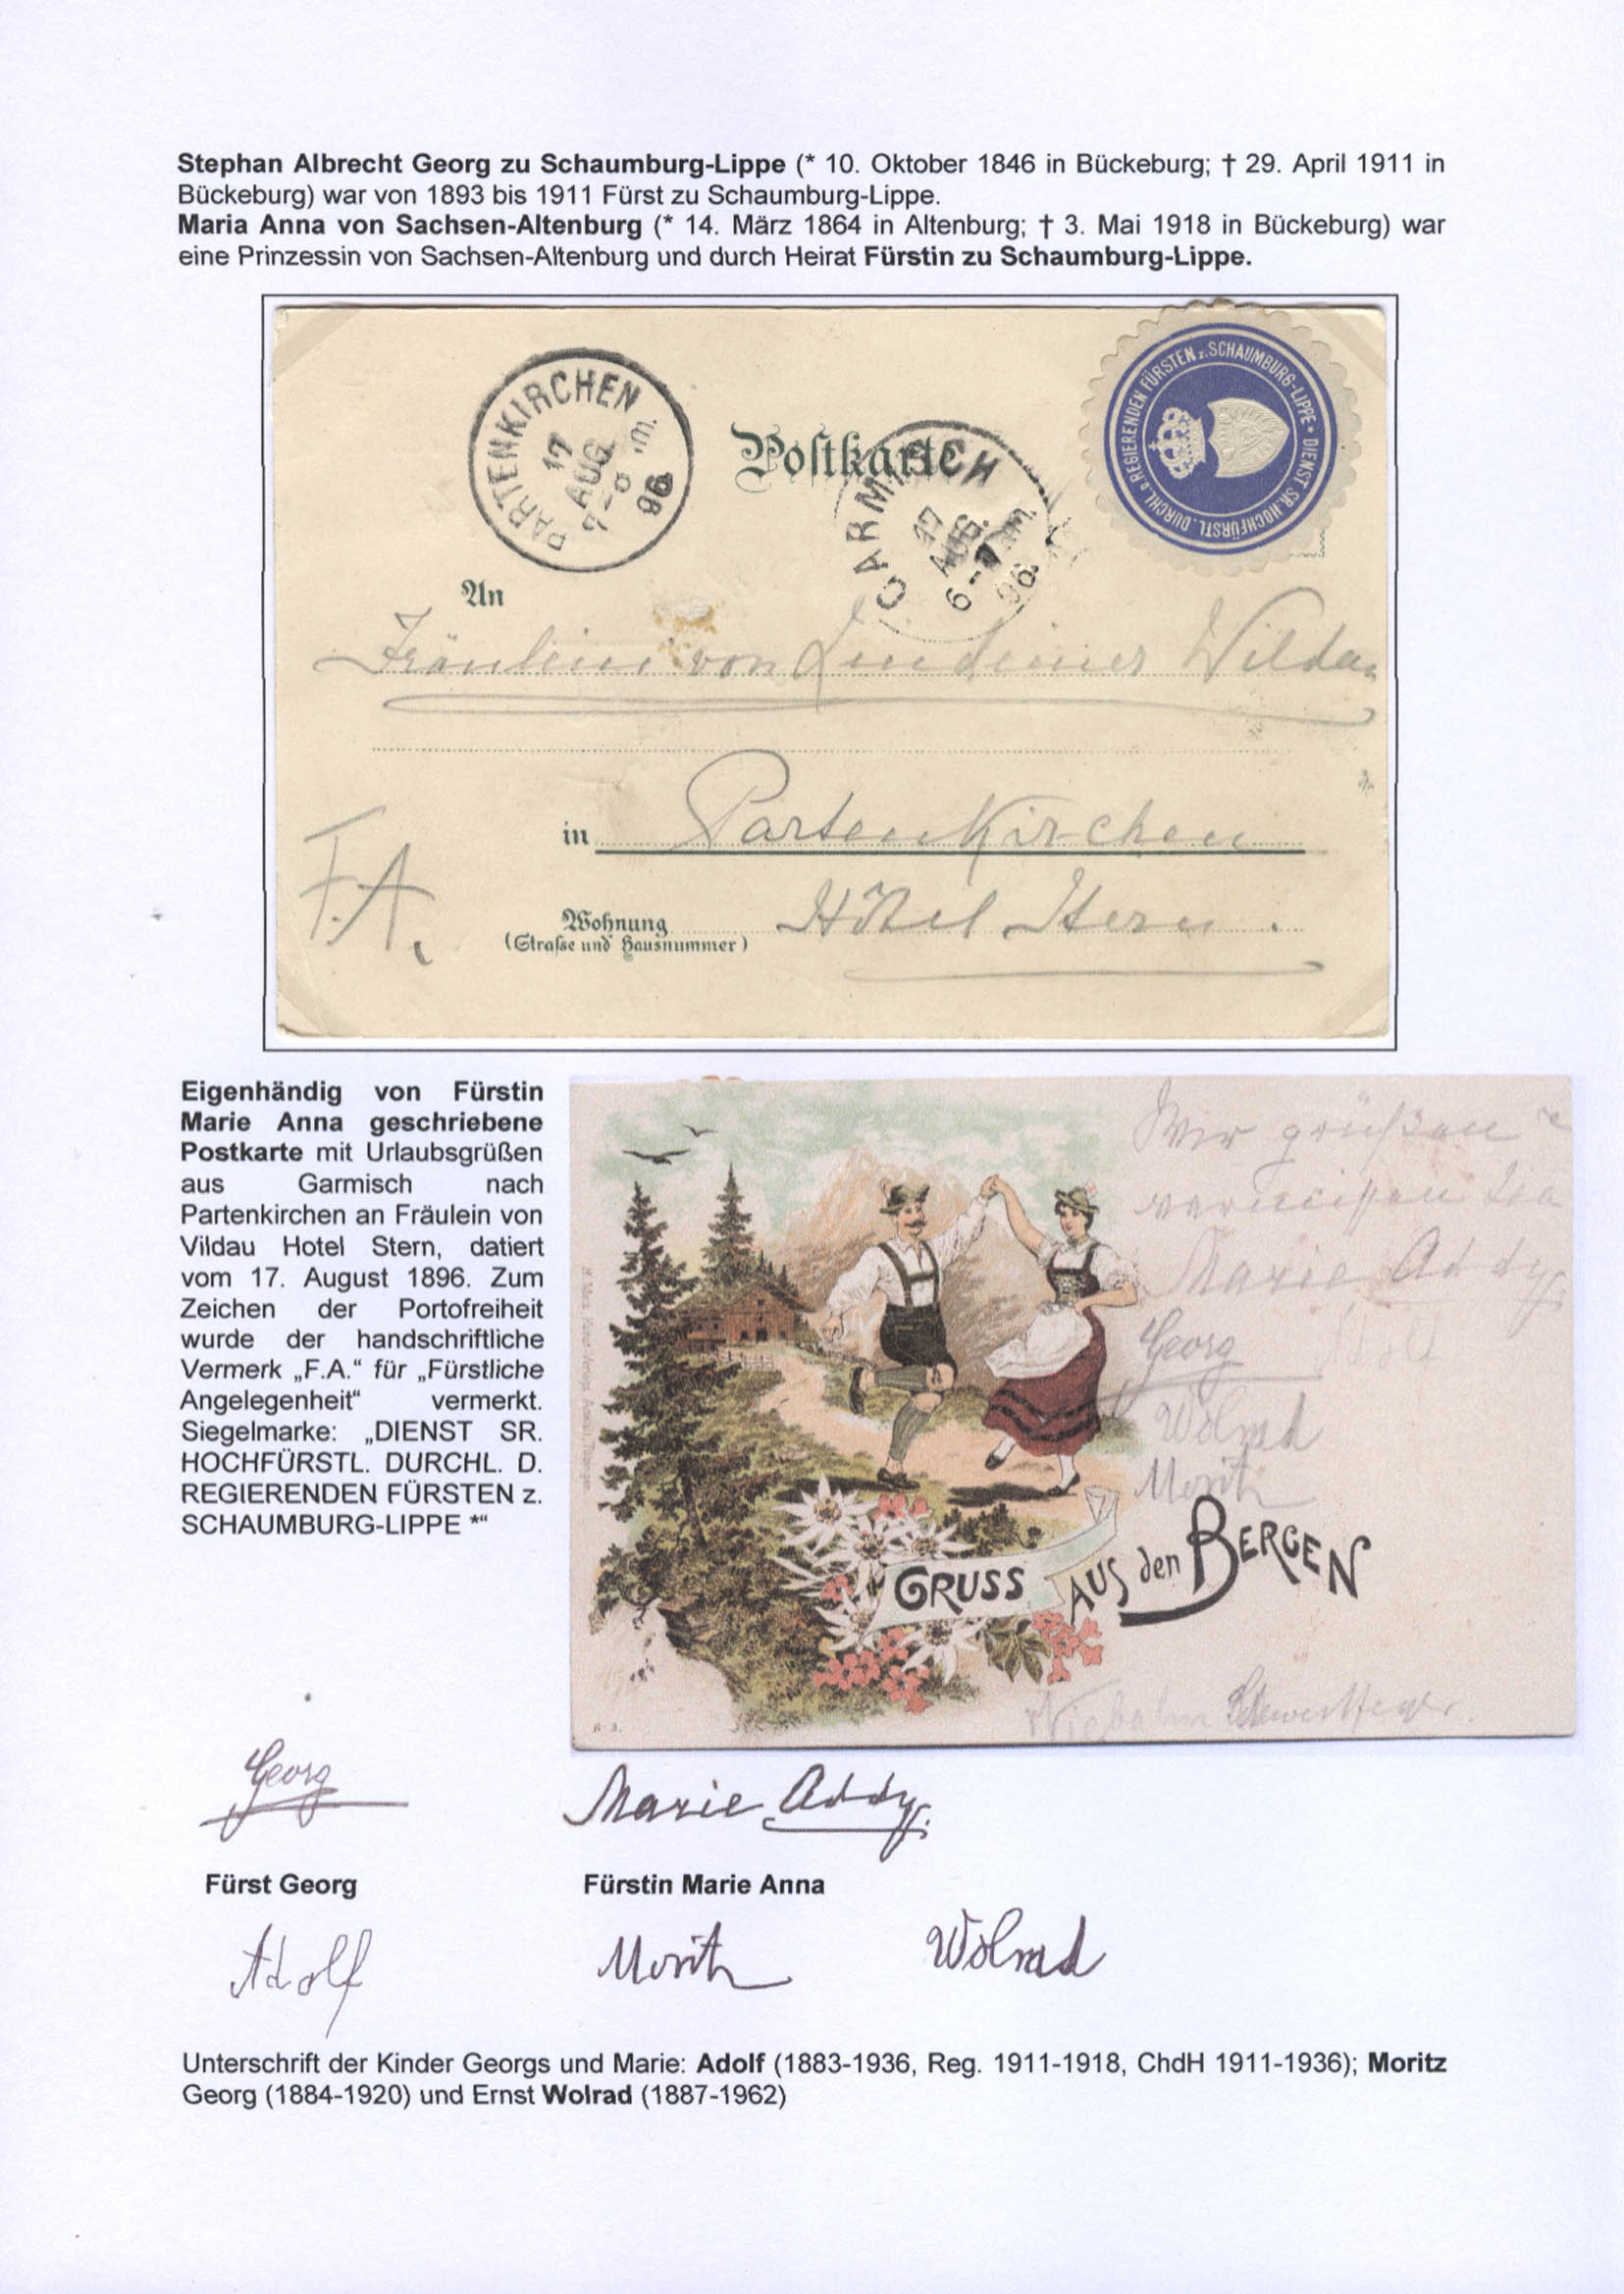 Stephan Albrecht Georg zu Schaumburg-Lippe (* 10. Oktober 1846 in Bückeburg; † 29. April 1911 in
Bückeburg) war von 1893 bis 1911 Fürst zu Schaumburg-Lippe.
Maria Anna von Sachsen-Altenburg (* 14. März 1864 in Altenburg; † 3. Mai 1918 in Bückeburg) war
eine Prinzessin von Sachsen-Altenburg und durch Heirat Fürstin zu Schaumburg-Lippe.
DIENST SR. HOCHFÜRSTL. DURCHL. D. REGIERENDEN FÜRSTEN z. SCHAUMBURG-LIPPE *
PARTENKIRCHEN
17
AUG.
7-8 Nm.
96
Postkarte
GARMISCH
17
AUG.
6-7 Nm.
96
An
Fräulein von Lindeiner Wildau
in Partenkirchen
F.A.
Wohnung Hôtel Stern.
(Straße und Hausnummer)
Eigenhändig von Fürstin
Marie Anna geschriebene
Postkarte mit Urlaubsgrüßen
aus Garmisch nach
Partenkirchen an Fräulein von
Vildau Hotel Stern, datiert
vom 17. August 1896. Zum
Zeichen der Portofreiheit
wurde der handschriftliche
Vermerk „F.A.“ für „Fürstliche
Angelegenheit“ vermerkt.
Siegelmarke: „DIENST SR.
HOCHFÜRSTL. DURCHL. D.
REGIERENDEN FÜRSTEN z.
SCHAUMBURG-LIPPE *“
Wir grüßen
Marie Addy.
Georg Adolf
Wolrad
Moritz
GRUSS AUS den BERGEN
Georg
Marie Addy.
Fürst Georg
Fürstin Marie Anna
Adolf
Moritz
Wolrad
Unterschrift der Kinder Georgs und Marie: Adolf (1883-1936, Reg. 1911-1918, ChdH 1911-1936); Moritz
Georg (1884-1920) und Ernst Wolrad (1887-1962)